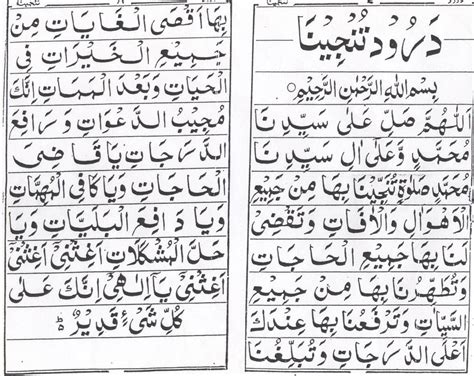 دَرُود تُنَجِّينَا
بِسْمِ اللهِ الرَّحْمٰنِ الرَّحِيْمِ
اَللّٰهُمَّ صَلِّ عَلٰى سَيِّدِ نَا
مُحَمَّدٍ وَّعَلٰى اٰلِ سَيِّدِ نَا
مُحَمَّدٍ صَلٰوةً تُنَجِّيْنَا بِهَا مِنْ جَمِيْعِ
الْاَهْوَالِ وَالْاٰفَاتِ وَتَقْضِىْ
لَنَا بِهَا جَمِيْعَ الْحَاجَاتِ
وَتُطَهِّرُنَا بِهَا مِنْ جَمِيْعِ
السَّيِّاٰتِ وَتَرْفَعُنَا بِهَا عِنْدَكَ
اَعْلَى الدَّرَجَاتِ وَتُبَلِّغُنَا
بِهَا اَقْصَى الْغَايَاتِ مِنْ
جَمِيْعِ الْخَيْرَاتِ فِى
الْحَيَاتِ وَبَعْدَ الْمَمَاتِ اِنَّكَ
مُجِيْبُ الدَّعْوَاتِ وَرَافِعُ
الدَّرَجَاتِ يَا قَاضِىَ
الْحَاجَاتِ وَيَا كَافِىَ الْمُهِمَّاتِ
وَيَا دَافِعَ الْبَلِيَّاتِ وَيَا
حَلَّ الْمُشْكِلَاتِ اَغِثْنِىْ اَغِثْنِىْ
اَغِثْنِىْ يَا اِلٰهِىْ اِنَّكَ عَلٰى
كُلِّ شَىْءٍ قَدِيْرٌ